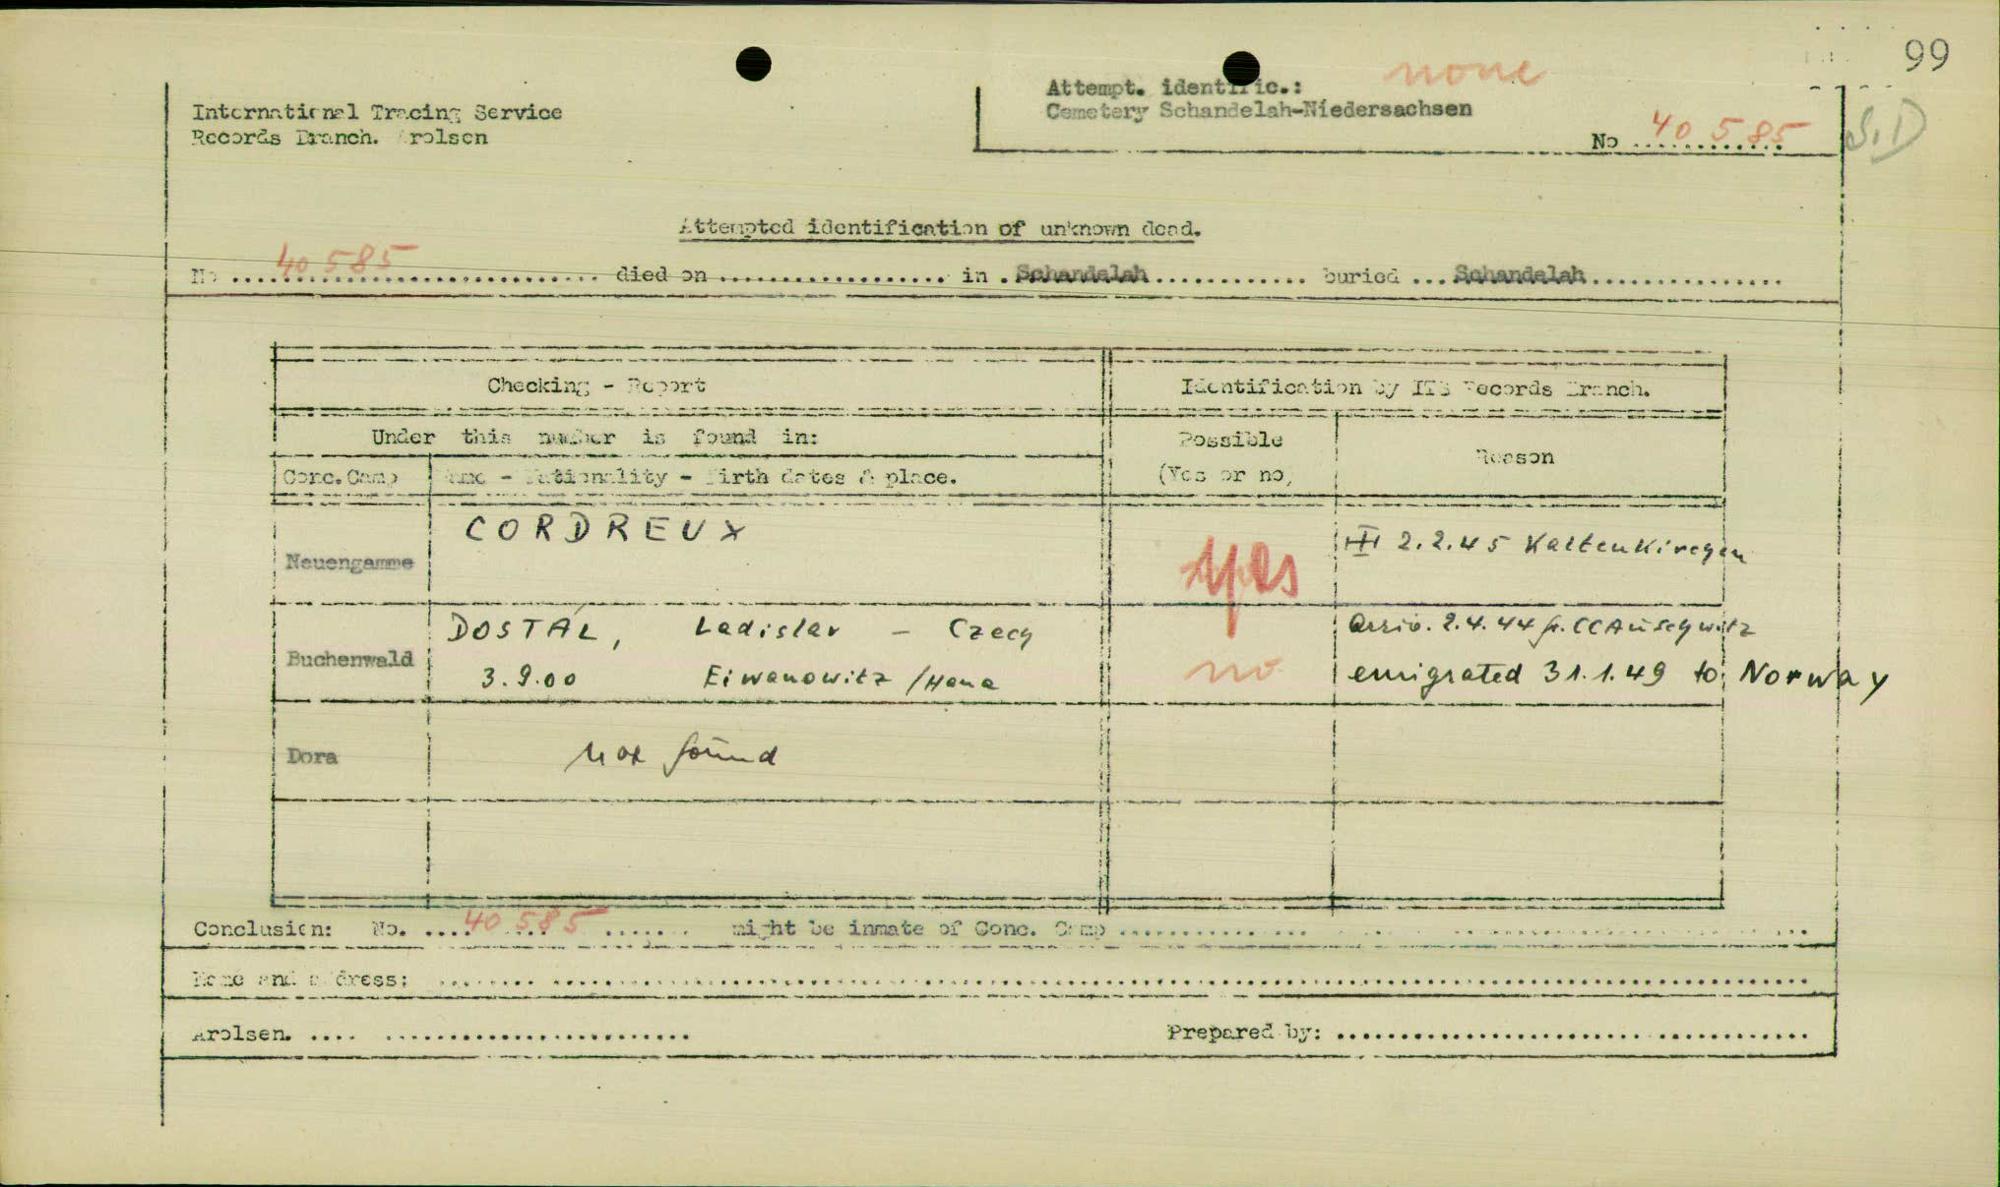 99
none
Attempt. identific.:
International Tracing Service
Cemetery Schandelah-Niedersachsen
Records Branch. Arolsen
No 40 585
S.D
Attempted identification of unknown dead.
No 40 585 died on in Schandelah buried Schandelah
Checking - Report Identification by ITS Records Branch.
Under this number is found in: Possible (Yes or no) Reason
Conc.Camp Name - Nationality - Birth dates & place.
Neuengamme CORDREUX yes 2.2.45 Kaltenkirchen
Buchenwald DOSTÁL, Ladislav - Czech Arriv. 2.4.44 fr. CC Auschwitz
3.9.00 Eiwanowitz /Hana no emigrated 31.1.49 to Norway
Dora not found
Conclusion: No. 40 585 might be inmate of Conc. Camp
Name and address:
Arolsen. Prepared by: